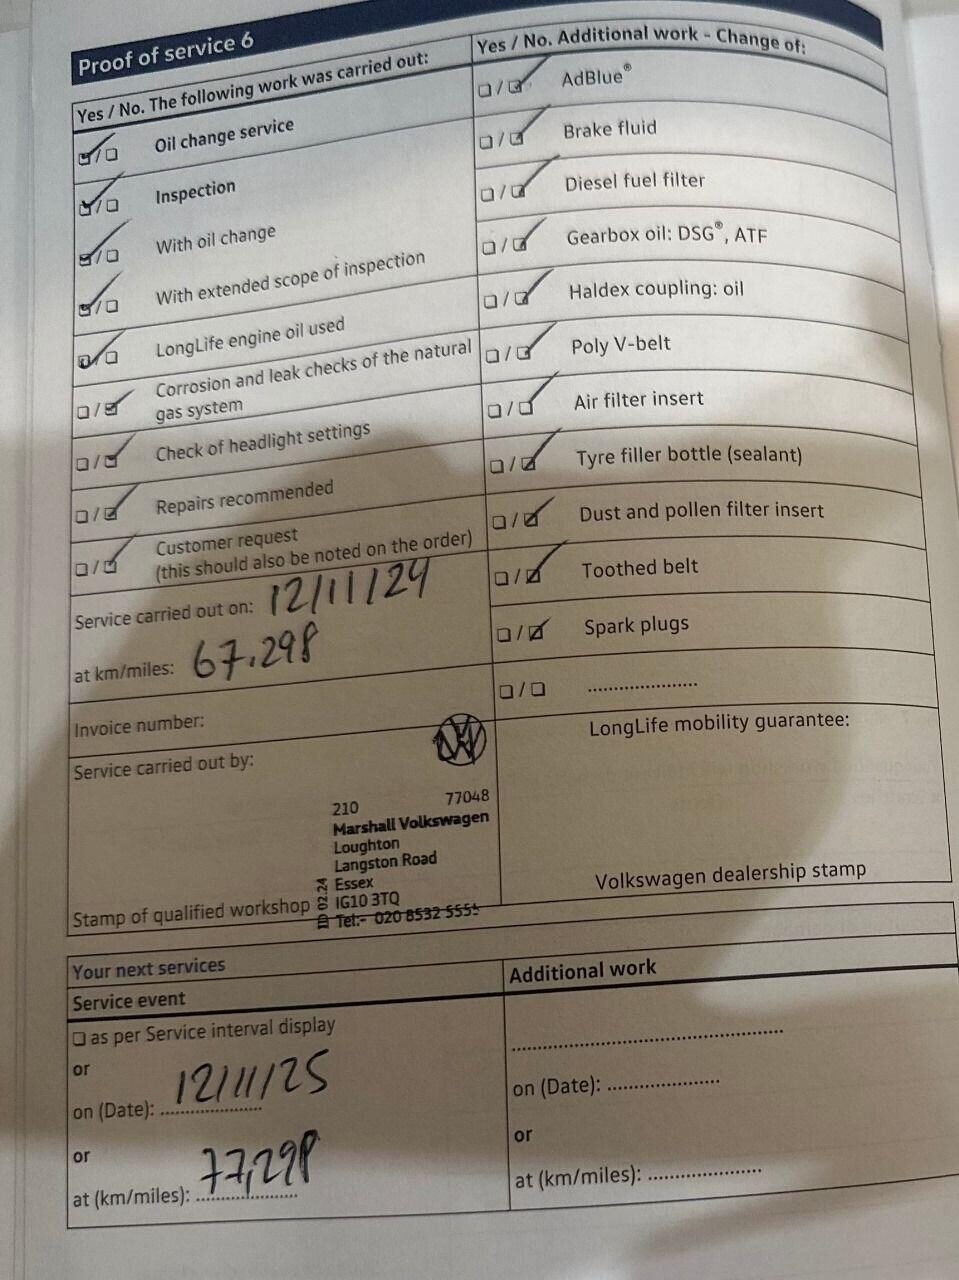 Proof of service 6
Yes / No. The following work was carried out:
Oil change service
Inspection
With oil change
With extended scope of inspection
LongLife engine oil used
Corrosion and leak checks of the natural
gas system
Check of headlight settings
Repairs recommended
Customer request
(this should also be noted on the order)
Service carried out on: 12/11/24
at km/miles: 67.298
Invoice number:
Service carried out by:
210 77048
Marshall Volkswagen
Loughton
Langston Road
Essex
IG10 3TQ
Tel:- 020 8532 5555
02.24
Stamp of qualified workshop
Yes / No. Additional work - Change of:
AdBlue®
Brake fluid
Diesel fuel filter
Gearbox oil: DSG®, ATF
Haldex coupling: oil
Poly V-belt
Air filter insert
Tyre filler bottle (sealant)
Dust and pollen filter insert
Toothed belt
Spark plugs
....................
LongLife mobility guarantee:
Volkswagen dealership stamp
Your next services
Service event
as per Service interval display
or
on (Date): 12/11/25
or
at (km/miles): 77,298
Additional work
..................................................
on (Date): ....................
or
at (km/miles): ....................